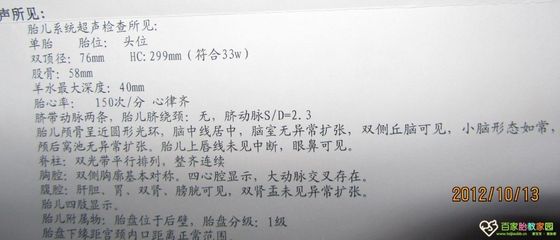 声所见:
胎儿系统超声检查所见:
单胎 胎位: 头位
双顶径: 76mm HC:299mm (符合33w)
股骨: 58mm
羊水最大深度: 40mm
胎心率: 150次/分 心律齐
脐带动脉两条, 胎儿脐绕颈: 无, 脐动脉S/D=2.3
胎儿颅骨呈近圆形光环, 脑中线居中, 脑室无异常扩张, 双侧丘脑可见, 小脑形态如常,
颅后窝池无异常扩张。胎儿上唇线未见中断, 眼鼻可见。
脊柱: 双光带平行排列, 整齐连续
胸腔: 双侧胸廓基本对称。四心腔显示, 大动脉交叉存在。
腹腔: 肝脏、胃、双肾、膀胱可见, 双肾盂未见异常扩张。
胎儿四肢显示。
胎儿附属物: 胎盘位于后壁, 胎盘分级: 1级
胎盘下缘距宫颈内口距离正常范围
2012/10/13
百家胎教家园